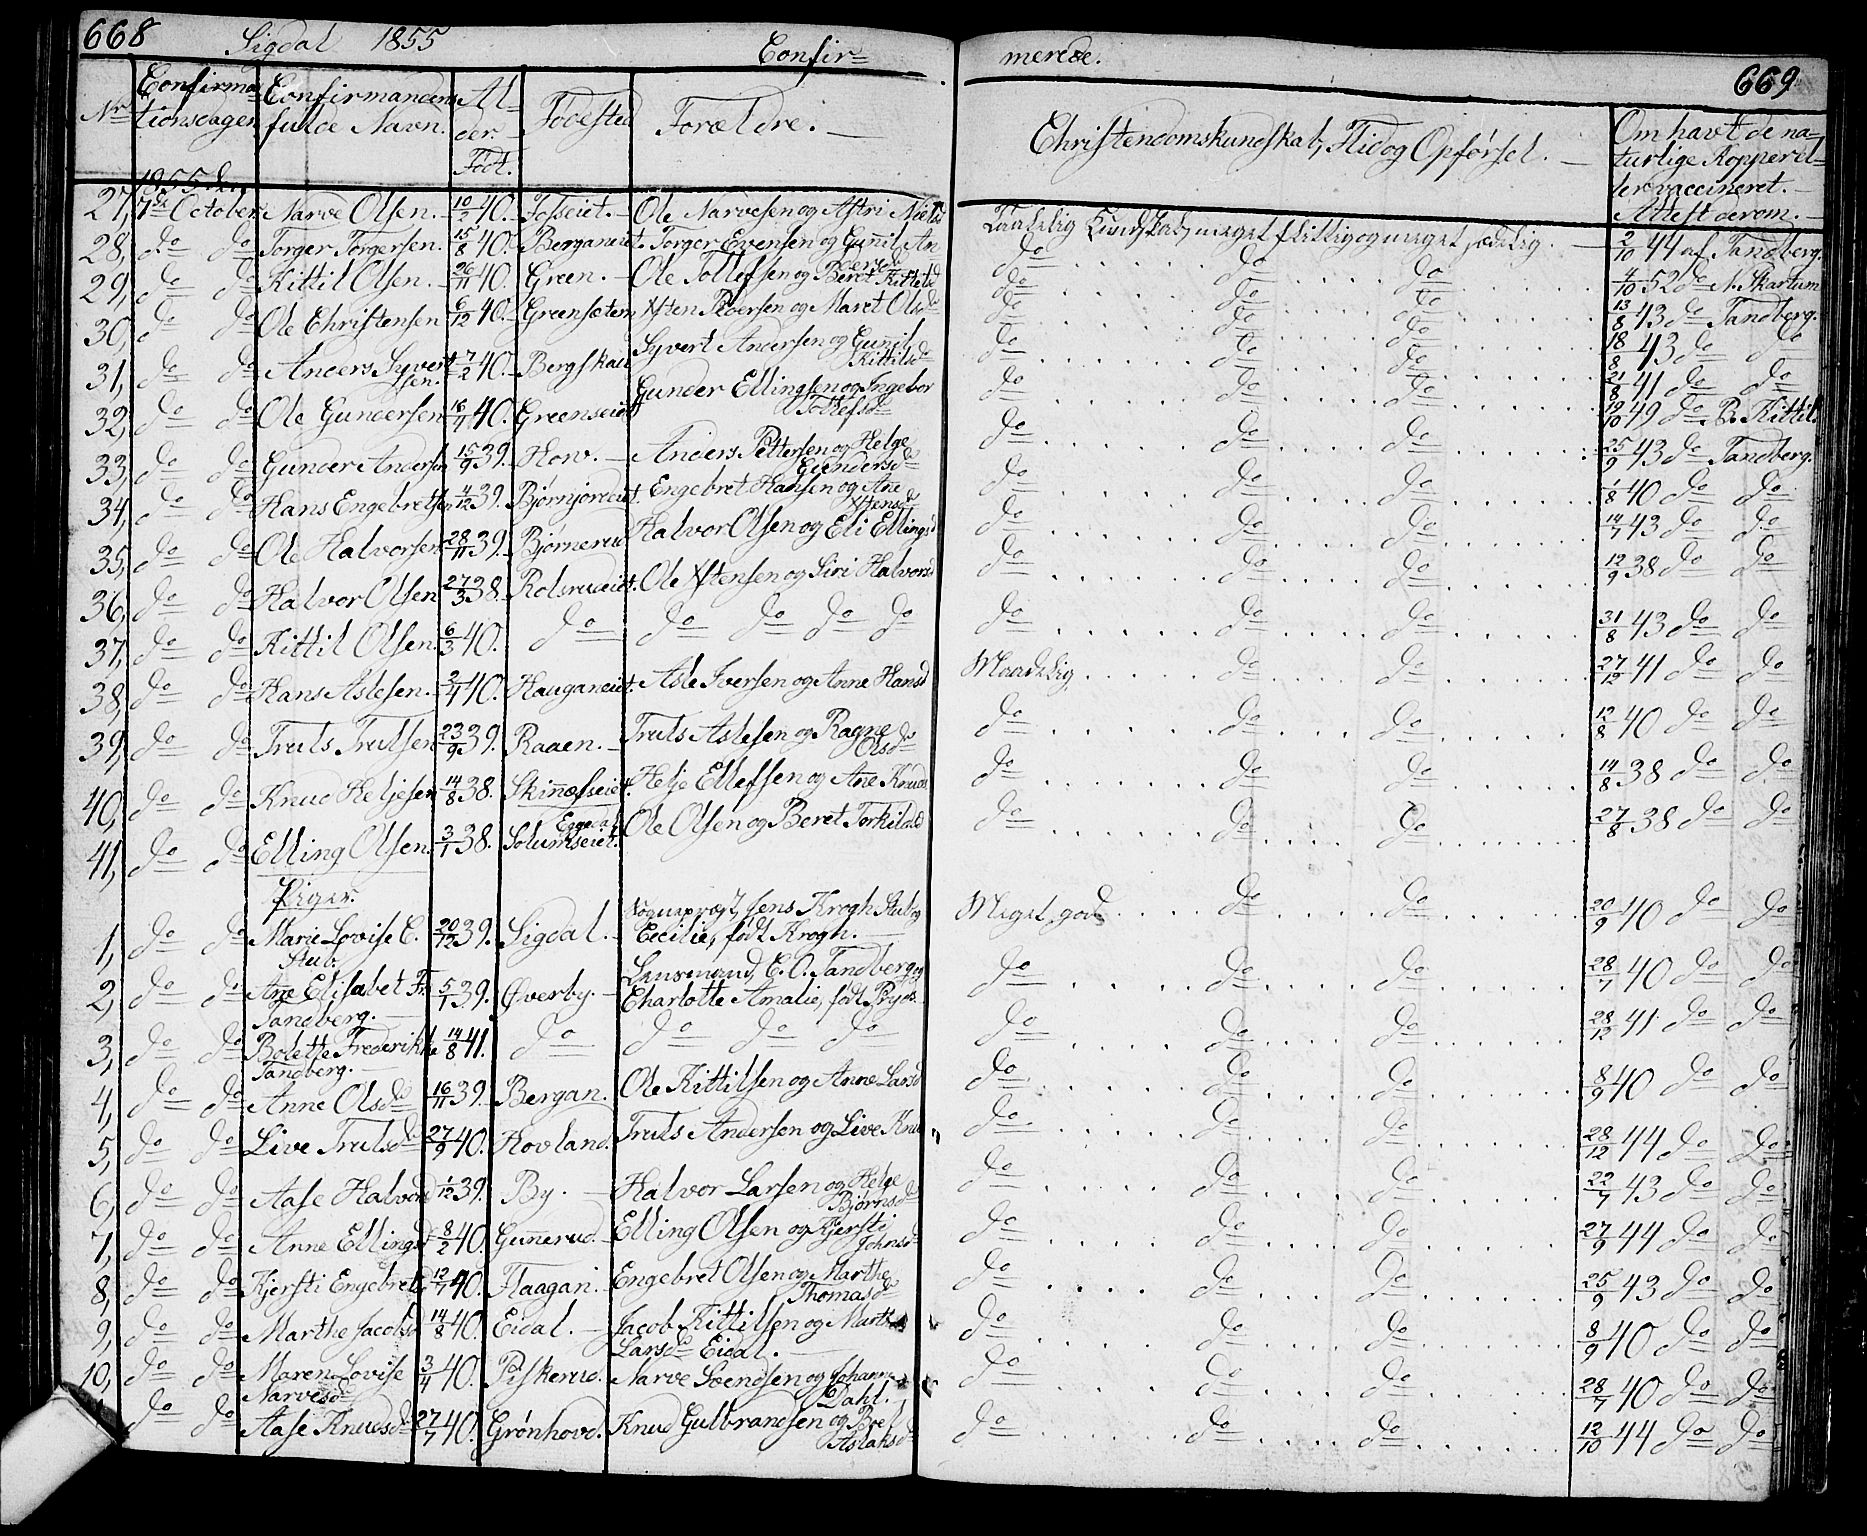 668 Sigdal 1855 Confir=
merede. 669
Nr Confirma= tionsdagen Confirmandens fulde Navn. Al= der. Født. Fødested Forældre. —
Christendomskundskab, Flid og Opførsel. — Om havt de na= turlige Kopper el= ler vaccineret. — Attest derom. —
1855 den
27, 7de October Narve Olsen. 10/2 40. Fosseiet. — Ole Narvesen og Astri Nielsd
28, do do Torger Torgersen. 15/8 40. Berganeiet. Torger Evensen og Gunnil An dersd
29, do do Kittil Olsen. 26/11 40. Green. — Ole Tollefsen og Beret Kittilsd
30, do do Ole Christensen 6/12 40. Greensætern Xsten Pedersen og Maret Olsd
31, do do Anders Syvert sen. 7/2 40. Bergskau Syvert Andersen og Gunnil Kittilsd
32, do do Ole Gundersen 16/7 40. Greenseiet Gunder Ellingsen og Ingebor Tollefsd
33, do do Gunder Andersen 15/9 39. Hov. — Anders Pettersen og Helge Gundersd
34, do do Hans Engebretsen 4/12 39. Bjørnjordeiet. Engebret Hansen og Ane Xstensd
35, do do Ole Halvorsen 28/11 39. Bjørnerud Halvor Olsen og Eli Ellingsd
36, do do Halvor Olsen 27/3 38. Rolsrudeiet. Ole Xstensen og Siri Halvorsd
37, do do Kittil Olsen. 6/3 40. do do do do do
38, do do Hans Aslesen. 2/4 40. Hauganeiet. Asle Iversen og Anne Hansd
39, do do Truls Trulsen 23/9 39. Raaen. — Truls Aslesen og Ragne Olsd
40, do do Knud Heljesen 14/8 38. Skinnæseiet. Helje Ellefsen og Ane Knudsd
41, do do Elling Olsen. 3/1 38. Eggedal Solumseiet. Ole Olsen og Beret Torkilsd
Piger.
1, do do Marie Lovise C. Stub. 20/12 39. Sigdal. — Sognepræst, Jens Krogh Stub og Cecilie, født Krogh. —
2, do do Ane Elisabet Fr. Tandberg. — 5/1 39. Øverby. — Lensmand, E. O. Tandberg og Charlotte Amalie, født Pryds.
3, do do Bolette Frederikke Tandberg. — 14/8 41. do do do do
4, do do Anne Olsd 16/11 39. Bergan. Ole Kittilsen og Anne Larsd
5, do do Live Trulsd 27/9 40. Hovland. Truls Andersen og Live Knu
6, do do Aase Halvorsd 1/12 39. By. — Halvor Larsen og Helge Bjørnsd
7, do do Anne Ellingsd 8/2 40. Gunnerud. — Elling Olsen og Kjersti Johnsd
8, do do Kjersti Engebretsd 12/7 40. Flaagan. Engebret Olsen og Marthe Thomasd
9, do do Marthe Jacobsd 14/8 40. Eidal. — Jacob Kittilsen og Marthe Larsd Eidal. —
10, do do Maren Lovise Narvesd 3/4 40. Piskerud. Narve Svendsen og Johanne Dahl.
do do Aase Knudsd 27/7 40. Grønhovd. Knud Gulbrandsen og Boel Aslaksd
Taalelig Kundskab, meget flittig og meget sædelig. — 2/10 44 af Tandberg.
do do do 4/10 52 do N. Skartum
do do do 13/8 43 do Tandberg.
do do do 18/8 43 do do
do do do 21/8 41 do do
do do do 19/10 49 do B. Kittil.
do do do 25/9 43 do Tandberg.
do do do 1/8 40 do do
do do do 14/7 43 do do
do do do 12/9 38 do do
do do do 31/8 43 do do
Maadelig do do 27/12 41 do do
do do do 12/8 40 do do
do do do 14/8 38 do do
do do do 27/8 38 do do
Meget god do do 20/9 40 do do
do do do 28/7 40 do do
do do do 28/12 41 do do
do do do 8/9 40 do do
do do do 28/12 44 do do
do do do 22/7 43 do do
do do do 27/9 44 do do
do do do 25/9 43 do do
do do do 8/9 40 do do
do do do 28/7 40 do do
do do do 12/10 44 do do